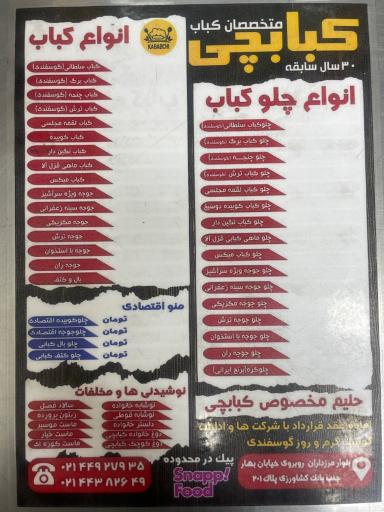 کبابچی
متخصصان کباب
۳۰ سال سابقه
KABABCHI
انواع کباب
کباب سلطانی (گوسفندی)
کباب برگ (گوسفندی)
کباب چنجه (گوسفندی)
کباب ترش (گوسفندی)
کباب لقمه مجلسی
کباب کوبیده
کباب نگین دار
کباب ماهی قزل آلا
کباب میکس
جوجه ویژه سرآشپز
جوجه سینه زعفرانی
جوجه مکزیکی
جوجه ترش
جوجه با استخوان
جوجه ران
بال و کتف
انواع چلو کباب
چلوکباب سلطانی (گوسفندی)
چلو کباب برگ (گوسفندی)
چلو چنجه (گوسفندی)
چلو کباب ترش (گوسفندی)
چلو کباب لقمه مجلسی
چلو کباب کوبیده دوسیخ
چلو کباب نگین دار
چلو ماهی کبابی قزل آلا
چلو کباب میکس
چلو جوجه ویژه سرآشپز
چلو جوجه سینه زعفرانی
چلو جوجه مکزیکی
چلو جوجه ترش
چلو جوجه با استخوان
چلو جوجه ران
چلوکره (برنج ایرانی)
منو اقتصادی
چلوکوبیده اقتصادی تومان
چلوجوجه اقتصادی تومان
چلو بال کبابی تومان
چلو کتف کبابی تومان
نوشیدنی ها و مخلفات
نوشابه خانواده
نوشابه قوطی
دلستر خانواده
دوغ خانواده کبابچی
دوغ کوچک کبابچی
سالاد فصل
زیتون پرورده
ماست موسیر
ماست خیار
ماست کوزه ای
حلیم مخصوص کبابچی
آماده عقد قرارداد با شرکت ها و ادارات
گوشت گرم و روز گوسفندی
بلوار مرزداران روبروی خیابان بهار
جنب بانک کشاورزی پلاک ۲۰۱
پیک در محدوده
Snapp!
Food
۰۲۱ ۴۴۹ ۲۷۹ ۳۸
۰۲۱ ۴۴۳ ۸۲۶ ۴۹